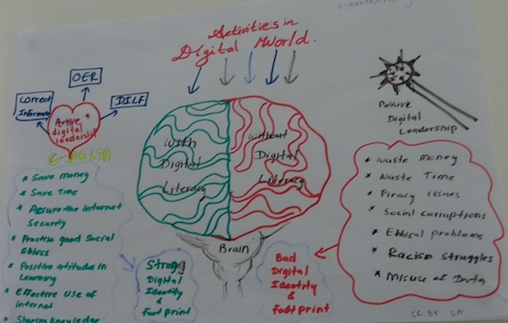 Activities in
Digital World.
OER
Correct
DILF
Active
digital
leadership
Passive
Digital
Leadership
With
Digital
Literacy
Without
Digital
Literacy
Brain
* Save money
* Save Time
* Assure the internet
Security
* Practise good Social
Ethics
* Positive attitudes in
Learning
* Effective Use of
Internet
* Sharing knowledge
Strong
Digital
Identity
&
Foot print
Bad
Digital
Identity
&
Foot print
* Waste money
* Waste Time
* Piracy issues
* Social corruptions
* Ethical problems
* Racism struggles
* Misuse of Data
CC BY SA